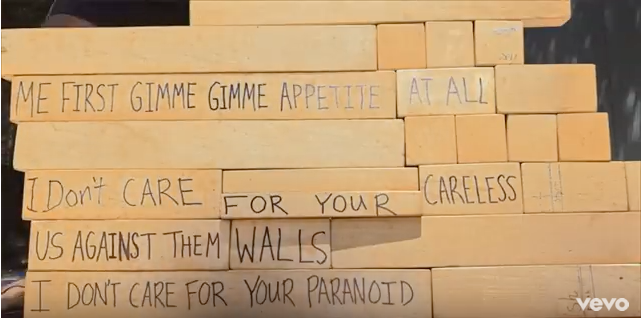 ME FIRST GIMME GIMME APPETITE AT ALL
I Don't CARE FOR YOUR CARELESS
US AGAINST THEM WALLS
I DON'T CARE FOR YOUR PARANOID
vevo